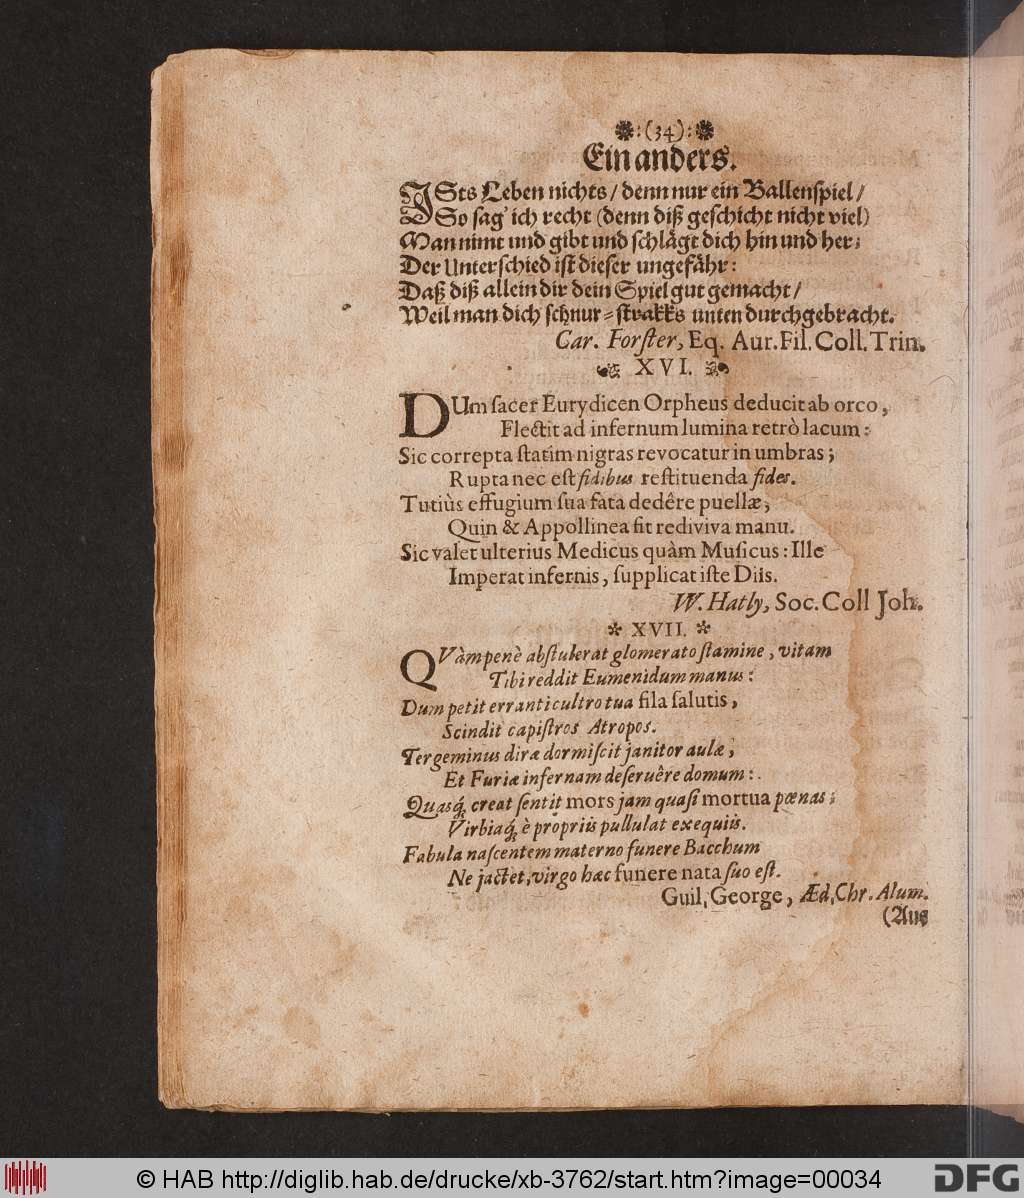 :(34):
Ein anders.
ISts Leben nichts / denn nur ein Ballenspiel /
So sag' ich recht (denn diß geschicht nicht viel)
Man nimt und gibt und schlägt dich hin und her;
Der Unterschied ist dieser ungefähr:
Daß diß allein dir dein Spiel gut gemacht /
Weil man dich schnur-strakks unten durchgebracht.
Car. Forster, Eq. Aur. Fil. Coll. Trin.
XVI.
DUm sacer Eurydicen Orpheus deducit ab orco,
Flectit ad infernum lumina retrò lacum:
Sic correpta statim nigras revocatur in umbras;
Rupta nec est fidibus restituenda fides.
Tutiùs effugium sua fata dedêre puellæ,
Quin & Appollinea fit rediviva manu.
Sic valet ulterius Medicus quàm Musicus: Ille
Imperat infernis, supplicat iste Diis.
W. Hatly, Soc. Coll Joh.
* XVII. *
QVàm penè abstulerat glomerato stamine, vitam
Tibi reddit Eumenidum manus:
Dum petit erranti cultro tua fila salutis,
Scindit capistros Atropos.
Tergeminus diræ dormiscit janitor aulæ,
Et Furiæ infernam deseruêre domum:
Quasq́; creat sentit mors jam quasi mortua pœnas;
Virbiaq́; è propriis pullulat exequiis.
Fabula nascentem materno funere Bacchum
Ne jactet, virgo hæc funere nata suo est.
Guil. George, Æd. Chr. Alum.
(Aus
© HAB http://diglib.hab.de/drucke/xb-3762/start.htm?image=00034
DFG